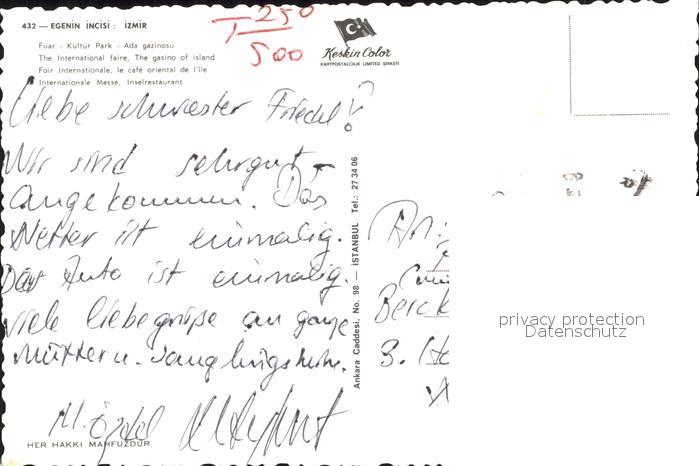 432 — EGENİN İNCİSİ : İZMİR
Fuar - Kültür Park - Ada gazinosu
The International faire, The gasino of island
Foir Internationale, le café oriental de l'île
Internationale Messe, Inselrestaurant
T 250
500
Keskin Color
KARTPOSTALCILIK LIMITED ŞİRKETİ
Liebe schwester Friedel!
Wir sind sehrgut
angekommen. Das
Wetter ist einmalig.
Das Auto ist einmalig.
viele liebegrüße an ganze
Mütter u. Säuglingsheim.
M. Özdal
HER HAKKI MAHFUZDUR
Ankara Caddesi, No. 98 — İSTANBUL Tel.: 27 34 06
An:
3.
privacy protection
Datenschutz